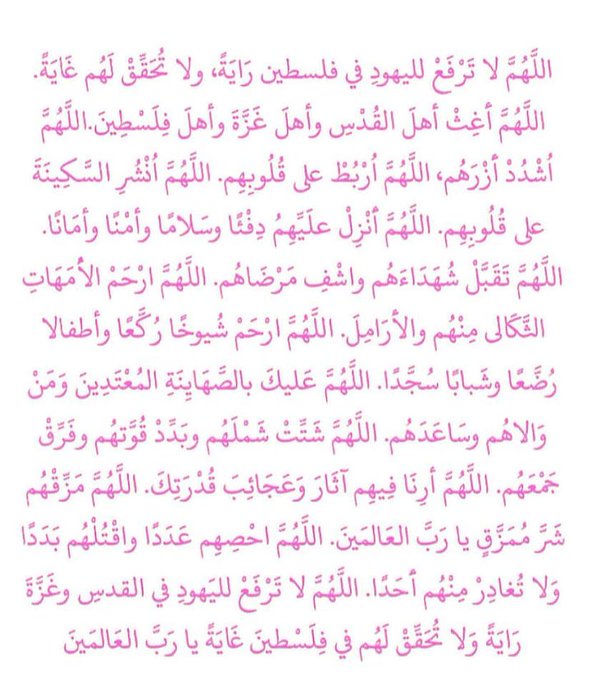 اللَّهُمَّ لا تَرْفَعْ لليهودِ في فلسطين رَايَةً، ولا تُحَقِّقْ لَهُم غَايَةً.
اللَّهُمَّ أغِثْ أهلَ القُدْسِ وأهلَ غَزَّةَ وأهلَ فِلَسْطِينَ.اللَّهُمَّ
اُشْدُدْ أزْرَهُم، اللَّهُمَّ اُرْبُطْ على قُلُوبِهِم. اللَّهُمَّ اُنْشُرِ السَّكِينَةَ
على قُلُوبِهِم. اللَّهُمَّ أنْزِلْ علَيَّهِمُ دِفْئًا وسَلامًا وأمْنًا وأمَانًا.
اللَّهُمَّ تَقَبَّلْ شُهَدَاءَهُم واشْفِ مَرْضَاهُم. اللَّهُمَّ ارْحَمْ الأمَهَاتِ
الثَّكَالى مِنْهُم والأرَامِلَ. اللَّهُمَّ ارْحَمْ شُيوخًا رُكَّعًا وأطفالا
رُضَّعًا وشَبابًا سُجَّدًا. اللَّهُمَّ عَليكَ بالصَّهَايِنَةِ المُعْتَدِينَ وَمَنْ
وَالاهُم وسَاعَدَهُم. اللَّهُمَّ شَتِّتْ شَمْلَهُم وبَدِّدْ قُوَّتهُم وفَرِّقْ
جَمْعَهُم. اللَّهُمَّ أرِنَا فِيهِم آثَارَ وَعَجَائِبَ قُدْرَتِكَ. اللَّهُمَّ مَزِّقْهُم
شَرَّ مُمَزَّقٍ يا رَبَّ العَالمَينَ. اللَّهُمَّ احْصِهِم عَدَدًا واقْتُلْهُم بَدَدًا
وَلا تُغادِرْ مِنْهُم أحَدًا. اللَّهُمَّ لا تَرْفَعْ لليَهودِ في القدسِ وغَزَّةَ
رَايَةً وَلا تُحَقِّقْ لَهُم في فِلَسْطينَ غَايَةً يا رَبَّ العَالمَينَ